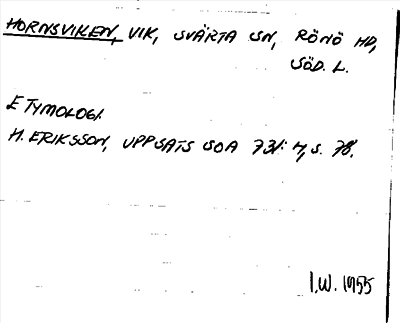 HORNSVIKEN, VIK, SVÄRTA SN, RÖNÖ HD,
SÖD. L.
ETYMOLOGI.
M. ERIKSSON, UPPSATS SOA 731: 4, S. 78.
I.W. 1955